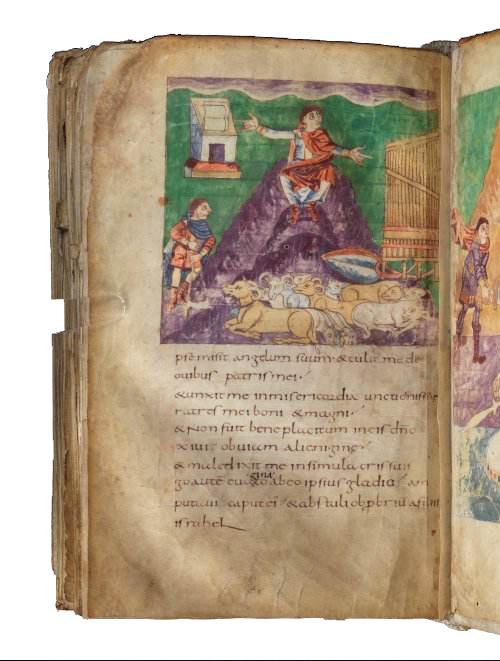 pse misit angelum suum · & tulit me de
ouibus patris mei ·
& unxit me in misericordia unctionis
ratres mei boni & magni ·
& Non fuit bene placitum in eis dno
xiui obuiam alienigine ·
& maledixit me in simulacris suis
gina
go aute euato ab eo ipsius gladio am
putaui caput ei · & abstuli obprbriu a filiis
israhel